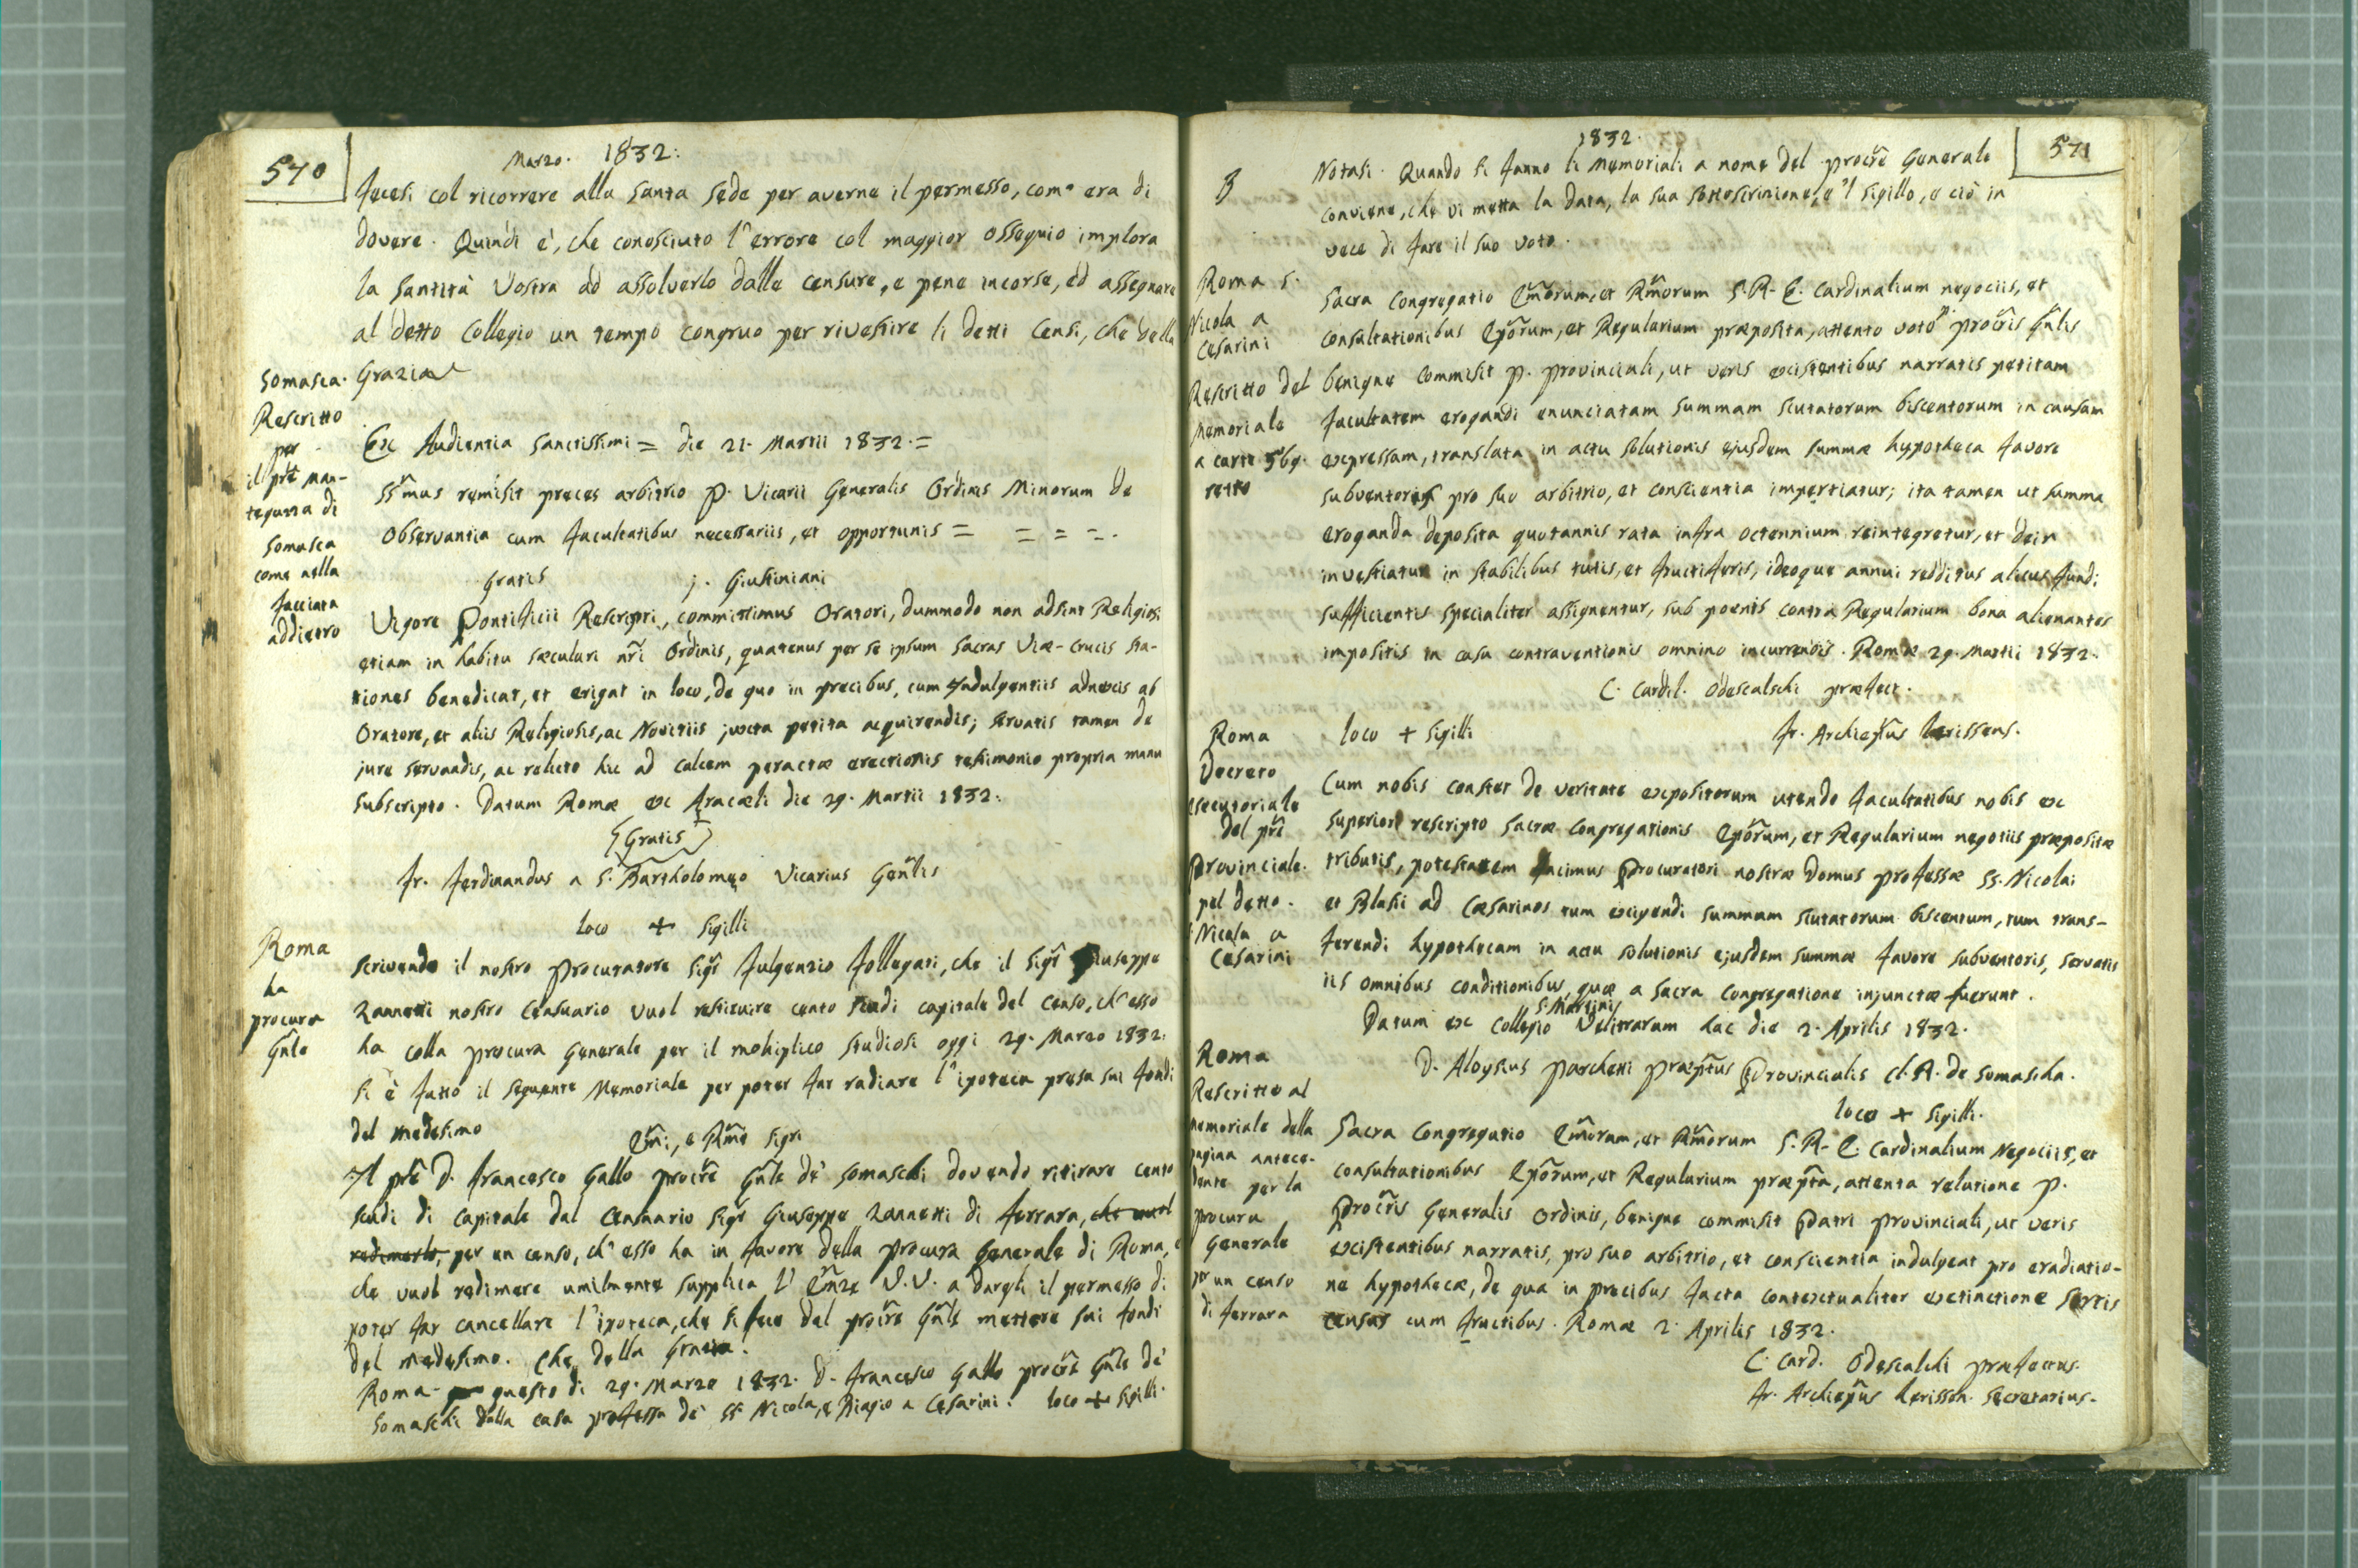 570
Marzo. 1832.
fecesi col ricorrere alla Santa Sede per averne il permesso, com' era di
dovere. Quindi è, che conosciuto l'errore col maggior ossequio implora
la Santità Vostra ad assolverlo dalle censure, e pene incorse, ed assegnare
al detto Collegio un tempo congruo per rivestire li detti Censi, che della
Grazia
Somasca.
Rescritto
per
il prẽ Man-
tegazza di
Somasca
come nella
facciata
addietro
Ex Audientia Sanctissimi = die 21. Martii 1832. =
SSm̃us remisit preces arbitrio P. Vicarii Generalis Ordinis Minorum de
Observantia cum facultatibus necessariis, et opportunis = = = =.
Gratis j. Giustiniani
Vigore Pontificii Rescripti, committimus Oratori, dummodo non adsint Religiosi
etiam in habitu sæculari nr̃i Ordinis, quatenus per se ipsum Sacras Viæ-Crucis Sta-
tiones benedicat, et erigat in loco, de quo in precibus, cum Indulgentiis adnexis ab
Oratore, et aliis Religiosis, ac Novitiis juxta petita acquirendis; servatis tamen de
jure servandis, ac relicto hic ad calcem peractæ erectionis testimonio propria manu
subscripto. Datum Romæ ex Aracæli die 29. Martii 1832.
Gratis
Fr. Ferdinandus a S. Bartholomeo Vicarius Genl̃is
loco + Sigilli
Roma
ha
procura
Gñle
Scrivendo il nostro Procuratore Sigr̃ Fulgenzio Follegati, che il Sigr̃ Giuseppe
Zannetti nostro Censuario vuol restituire cento scudi capitale del Censo, ch'esso
ha colla procura Generale per il moltiplico Studiosi oggi 29. Marzo 1832.
si è fatto il seguente Memoriale per poter far radiare l'ipoteca presa sui fondi
del medesimo
Em̃i, e Rm̃i Sigri
Il prẽ D. Francesco Gallo procr̃e Gñle de' Somaschi dovendo ritirare cento
scudi di capitale dal Censuario Sigr̃ Giuseppe Zannetti di Ferrara, che vuol
redimerlo, per un censo, ch'esso ha in favore della Procura Generale di Roma, e
che vuol redimere umilmente supplica l'Em̃ze V.V. a dargli il permesso di
poter far cancellare l'ipoteca, che si fece dal procr̃e Gñle mettere sui fondi
del medesimo. Che della Grazia.
Roma questo di 29. Marzo 1832. D. Francesco Gallo procr̃e Gñle de'
Somaschi dalla casa professa de' SS. Nicola, e Biagio a Cesarini. loco + Sigilli.
571
1832.
Notasi. Quando si fanno li Memoriali a nome del procr̃e Generale
conviene, che vi metta la data, la sua sottoscrizione, e 'l sigillo, e ciò in
vece di fare il suo voto.
Roma S.
Nicola a
Cesarini
Rescritto del
Memoriale
a carte 569.
retro
Sacra Congregatio Em̃orum, et Rm̃orum S.R.E. Cardinalium negociis, et
consultationibus Ep̃orum, et Regularium præposita, attento voto P. procr̃is Gñlis
benigne commisit P. Provinciali, ut veris existentibus narratis petitam
facultatem erogandi enunciatam summam scutatorum biscentorum in causam
expressam, translata in actu solutionis ejusdem summæ hypotheca favore
subventoris pro suo arbitrio, et conscientia impertiatur; ita tamen ut summa
eroganda deposita quotannis rata infra octennium reintegretur, et dein
investiatur in stabilibus tutis, et fructiferis, ideoque annui redditus alicus fundi
sufficientis specialiter assignentur, sub poenis contra Regularium bona alienantes
impositis in casu contraventionis omnino incurrendis. Romæ 29. Martii 1832.
C. Cardil. Odescalchi præfect.
loco + Sigilli
Roma
Decreto
esecutoriale
del prẽ
Provinciale.
pel detto.
Nicola a
Cesarini
Cum nobis constet de veritate expositorum utendo facultatibus nobis ex
superiori rescripto Sacræ Congregationis Ep̃orum, et Regularium negotiis præpositæ
tributis, potestatem facimus Procuratori nostræ Domus professæ SS. Nicolai
et Blasii ad Cæsarinos tum excipendi summam scutatorum biscentum, tum trans-
ferendi hypothecam in actu solutionis ejusdem summæ favore subventoris, servatis
iis omnibus conditionibus, quæ a Sacra Congregatione injunctæ fuerunt.
Datum ex Collegio S. Martini Velitrarum hac die 2. Aprilis 1832.
D. Aloysius Parchetti Præp̃tus Provincialis Cl. R. de Somascha.
loco + Sigilli.
Roma
Rescritto al
memoriale della
pagina antece-
dente per la
procura
Generale
per un censo
di Ferrara
Sacra Congregatio Em̃orum, et Rm̃orum S.R.E. Cardinalium Negociis, et
consultationibus Ep̃orum, et Regularium præp̃ta, attenta relatione P.
Procr̃is Generalis Ordinis, benigne commisit Patri Provinciali, ut veris
existentibus narratis, pro suo arbitrio, et conscientia indulgeat pro eradiatio-
ne hypothecæ, de qua in precibus facta contextualiter extinctione Sortis
census cum fructibus. Romæ 2. Aprilis 1832.
C. Card. Odescalchi præfectus.
Secretarius.